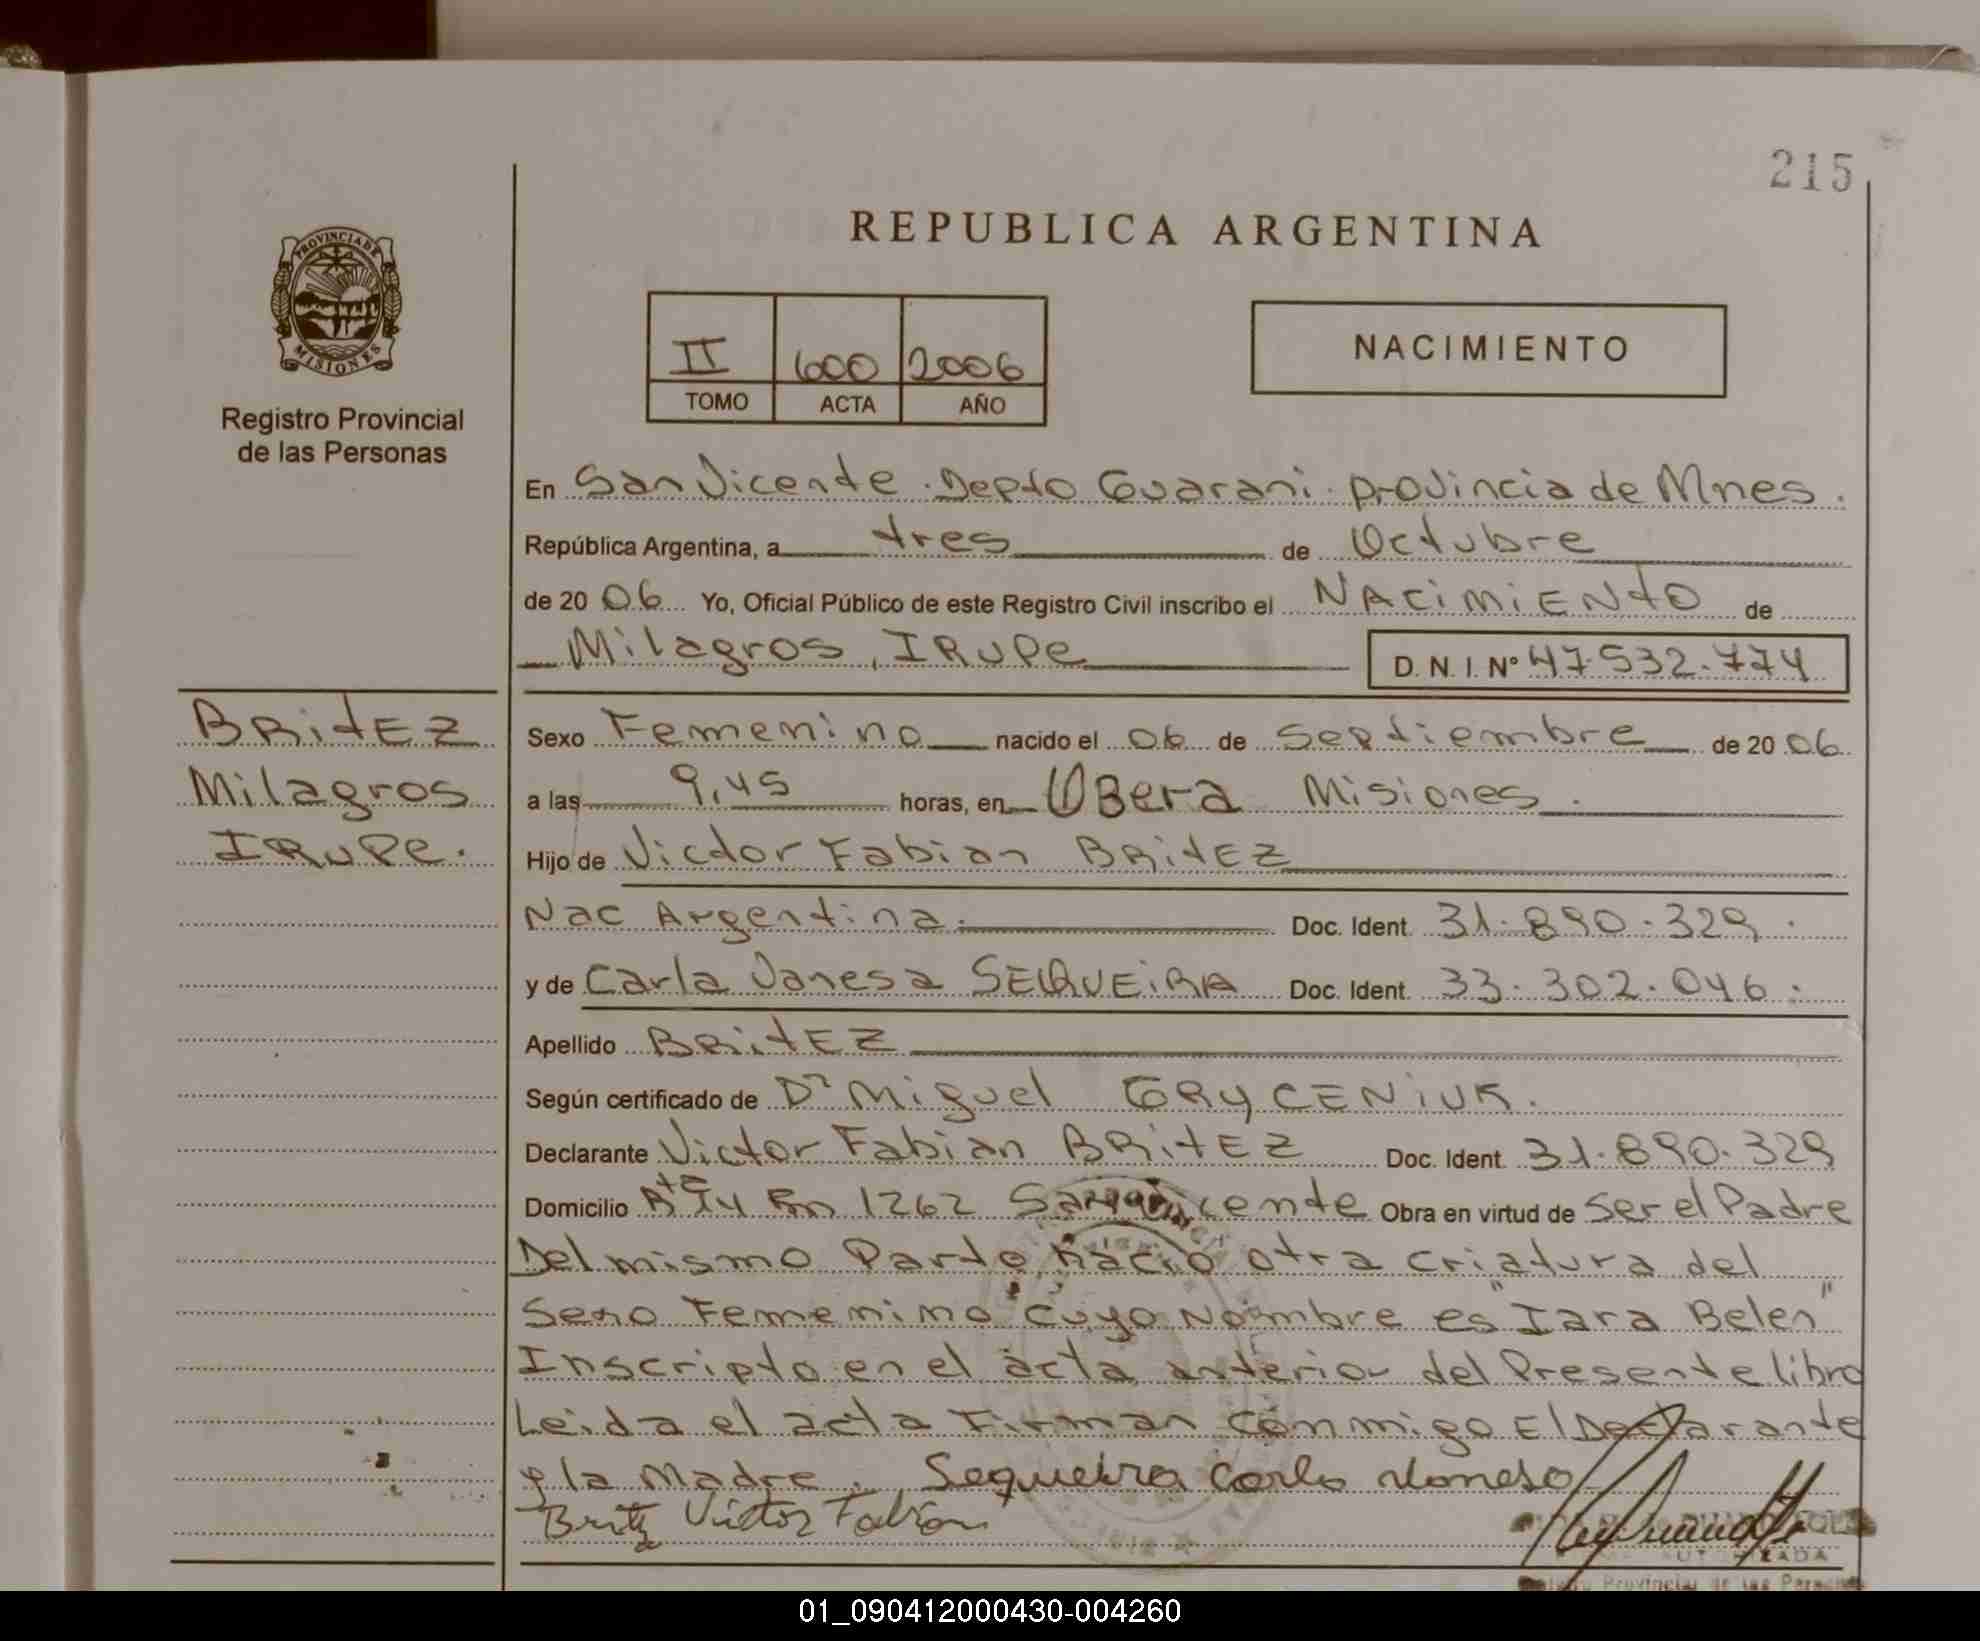 215
REPUBLICA ARGENTINA
PROVINCIA DE
MISIONES
Registro Provincial
de las Personas
II 600 2006
TOMO ACTA AÑO
NACIMIENTO
En San Vicente. Depto Guarani. provincia de Mnes.
República Argentina, a tres de Octubre
de 20 06 Yo, Oficial Público de este Registro Civil inscribo el NACiMiENtO de
Milagros, IRUPe D. N. I. Nº 47.532.774
BRitEZ
Milagros
IRUPe.
Sexo Femenino nacido el 06 de Septiembre de 20 06
a las 9,45 horas, en OBera Misiones.
Hijo de Victor Fabian BRitEZ
Nac Argentina. Doc. Ident. 31.890.329.
y de Carla Vanesa SEQUEiRA Doc. Ident. 33.302.046.
Apellido BRitEZ
Según certificado de Dr Miguel GRYCENiUK.
Declarante Victor Fabian BRitEZ Doc. Ident. 31.890.329
Domicilio Rta 14 Km 1262 San Vicente Obra en virtud de ser el Padre
Del mismo Parto, nacio otra criatura del
Sexo Femenino cuyo Nombre es "Iara Belen"
Inscripto en el acta anterior del Presente libro
Leida el acta Firman conmigo El Declarante
y la Madre. Sequeira Carla Vanesa
Britez Victor Fabian
AUTORIZADA
Registro Provincial de las Personas
01_090412000430-004260